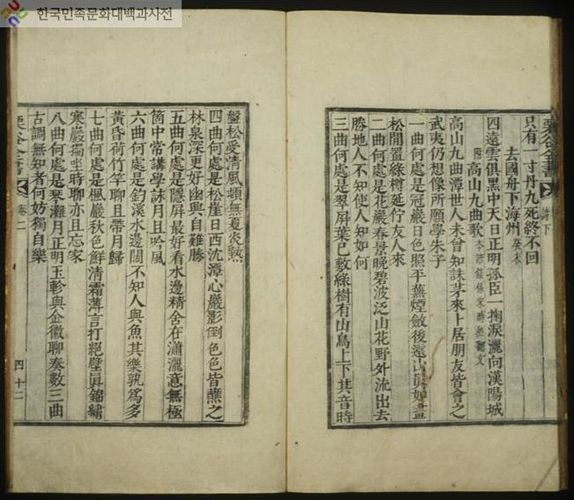 한국민족문화대백과사전
只有一寸丹九死終不回
去國舟下海州 癸未
四遠雲俱黑中天日正明孤臣一掬淚灑向漢陽城
附 高山九曲歌
高山九曲潭世人未曾知誅茅來卜居朋友皆會之
武夷仍想像所願學朱子
一曲何處是冠巖日色照平蕪煙斂後遠山眞如畫
松間置綠樽延佇友人來
二曲何處是花巖春景晚碧波泛山花野外流出去
勝地人不知使人知如何
三曲何處是翠屛葉已敷綠樹有山鳥上下其音時
栗谷全書
盤松受淸風頓無夏炎熱
四曲何處是松崖日西沈潭心巖影倒色色皆蘸之
林泉深更好幽興自難勝
五曲何處是隱屛最好看水邊精舍在瀟灑意無極
箇中常講學詠月且吟風
六曲何處是釣溪水邊闊不知人與魚其樂孰爲多
黃昏荷竹竿聊且帶月歸
七曲何處是楓巖秋色鮮淸霜薄言打絕壁眞錦繡
寒巖獨坐時聊亦且忘家
八曲何處是琴灘月正明玉軫與金徽聊奏數三曲
古調無知者何妨獨自樂
栗谷全書
卷二
四十二